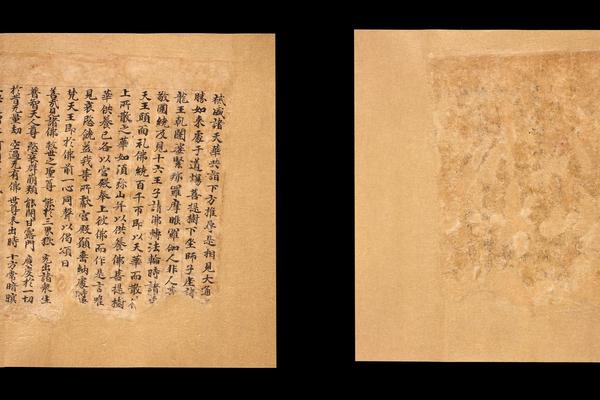 祴盛諸天華共詣下方推尋是相見大通
勝如来處于道場菩提樹下坐師子座諸
龍王乾闥婆緊那羅摩睺羅伽人非人等
敬圍繞及見十六王子請佛轉法輪時諸
天王頭面礼佛繞百千帀即以天華而散
上所散之華如須弥山并以供養佛菩提樹
華供養已各以宮殿奉上彼佛而作是言唯
見哀愍饒益我等所獻宮殿願垂納處
梵天王即於佛前一心同聲以偈頌曰
善哉見諸佛 救世之聖尊 能於三界獄 免出諸衆生
普智天人尊 愍哀群萠類 能開甘露門 廣度於一切
於昔无量劫 空過无有佛 世尊未出時 十方常暗瞑